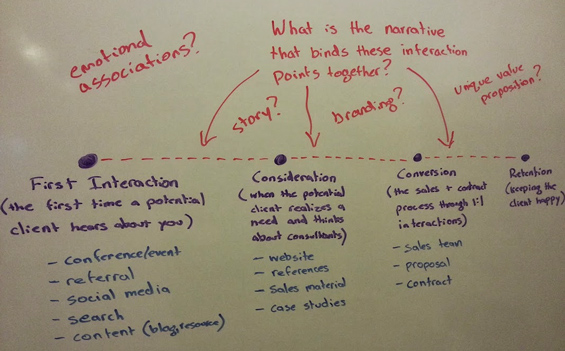 emotional
associations?
What is the narrative
that binds these interaction
points together?
unique value
proposition?
story?
branding?
First Interaction
(the first time a potential
client hears about you)
- conference/event
- referral
- social media
- search
- content (blog, resource)
Consideration
(when the potential
client realizes a
need and thinks
about consultants)
- website
- references
- sales material
- case studies
Conversion
(the sales + contract
process through 1:1
interactions)
- sales team
- proposal
- contract
Retention
(keeping the
client happy)